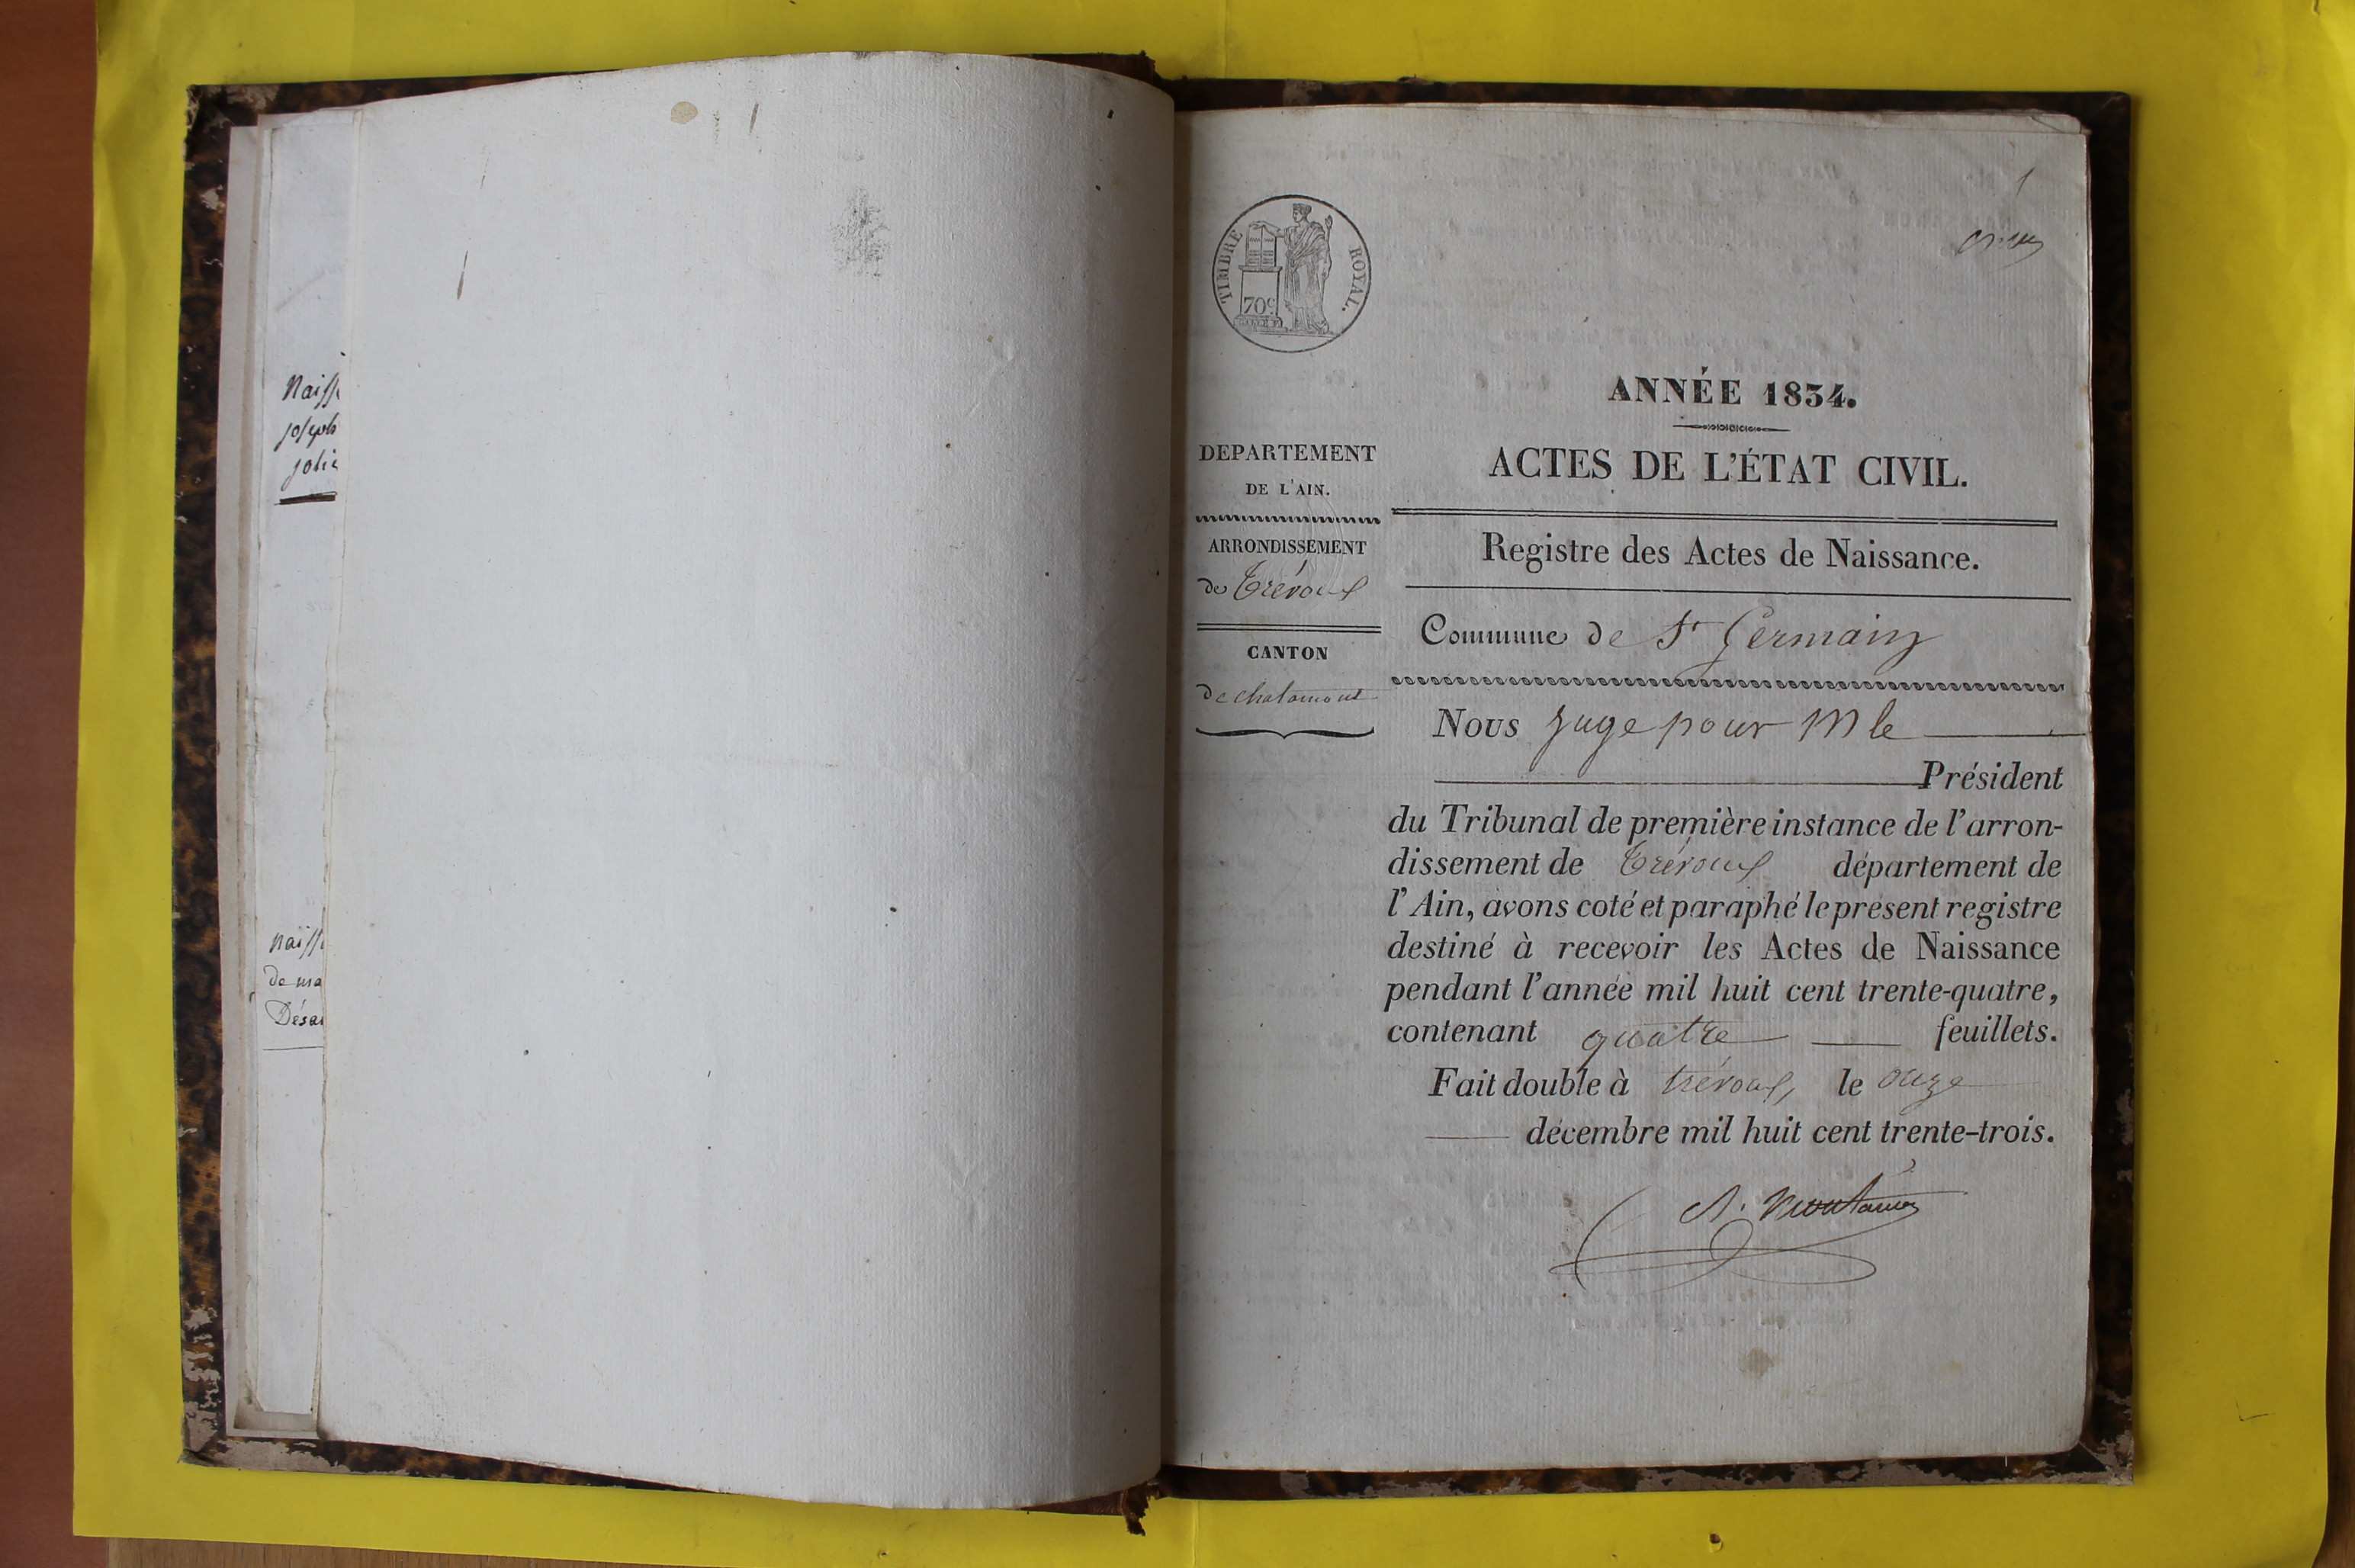 Naiss
joseph
jolie
naiss
de ma
Désa
1
TIMBRE ROYAL.
70c
ANNÉE 1834.
ACTES DE L'ÉTAT CIVIL.
DEPARTEMENT
DE L'AIN.
ARRONDISSEMENT
de Trévoux
CANTON
de chalamont
Registre des Actes de Naissance.
Commune de St Germain
Nous Juge pour M le
Président
du Tribunal de première instance de l'arron-
dissement de Trévoux département de
l'Ain, avons coté et paraphé le présent registre
destiné à recevoir les Actes de Naissance
pendant l'année mil huit cent trente-quatre,
contenant quatre feuillets.
Fait double à trévoux, le onze
décembre mil huit cent trente-trois.